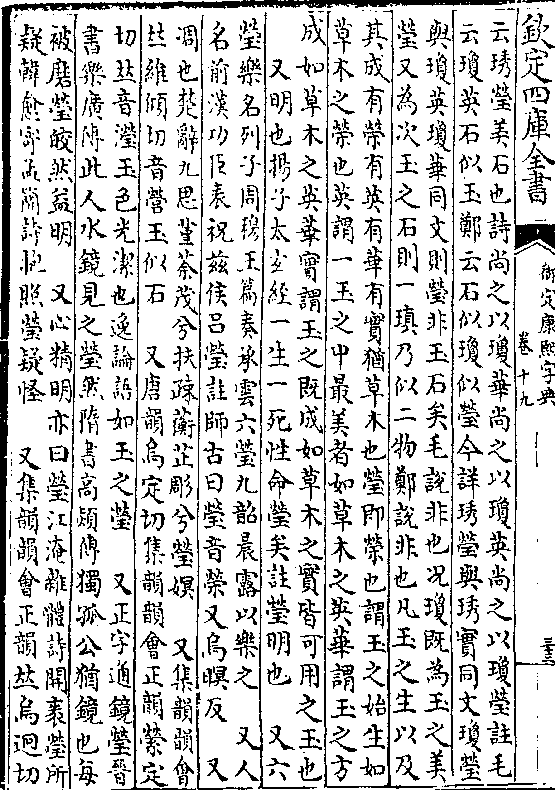 欽定四庫全書
御定康熙字典
卷十九
三三
云琇瑩美石也詩尚之以瓊華尚之以瓊英尚之以瓊瑩註毛
云瓊英石似玉鄭云石似瓊似瑩今詳琇瑩與琇實同文瓊瑩
與瓊英瓊華同文則瑩非玉石矣毛說非也况瓊既為玉之美
瑩又為次玉之石則一瑱乃似二物鄭說非也凡玉之生以及
其成有榮有英有華有實猶草木也瑩即榮也謂玉之始生如
草木之榮也英謂一玉之中最美者如草木之英華謂玉之方
成如草木之英華實謂玉之既成如草木之實皆可用之玉也
又明也揚子太玄經一生一死性命瑩矣註瑩明也 又六
瑩樂名列子周穆王篇奏承雲六瑩九韶晨露以樂之 又人
名前漢功臣表祝茲侯呂瑩註師古曰瑩音榮又烏暝反 又
凋也楚辭九思菫荼茂兮扶疎蘅芷彫兮瑩嫇 又集韻韻會
𠀤維傾切音營玉似石 又唐韻烏定切集韻韻會正韻縈定
切𠀤音瀅玉色光潔也逸論語如玉之瑩 又正字通鏡瑩晉
書樂廣傳此人水鏡見之瑩然隋書高熲傳獨孤公猶鏡也每
被磨瑩皎然益明 又心精明亦曰瑩江淹雜體詩開袠瑩所
疑韓愈寄孟簡詩恍照瑩疑怪 又集韻韻會正韻𠀤烏迥切